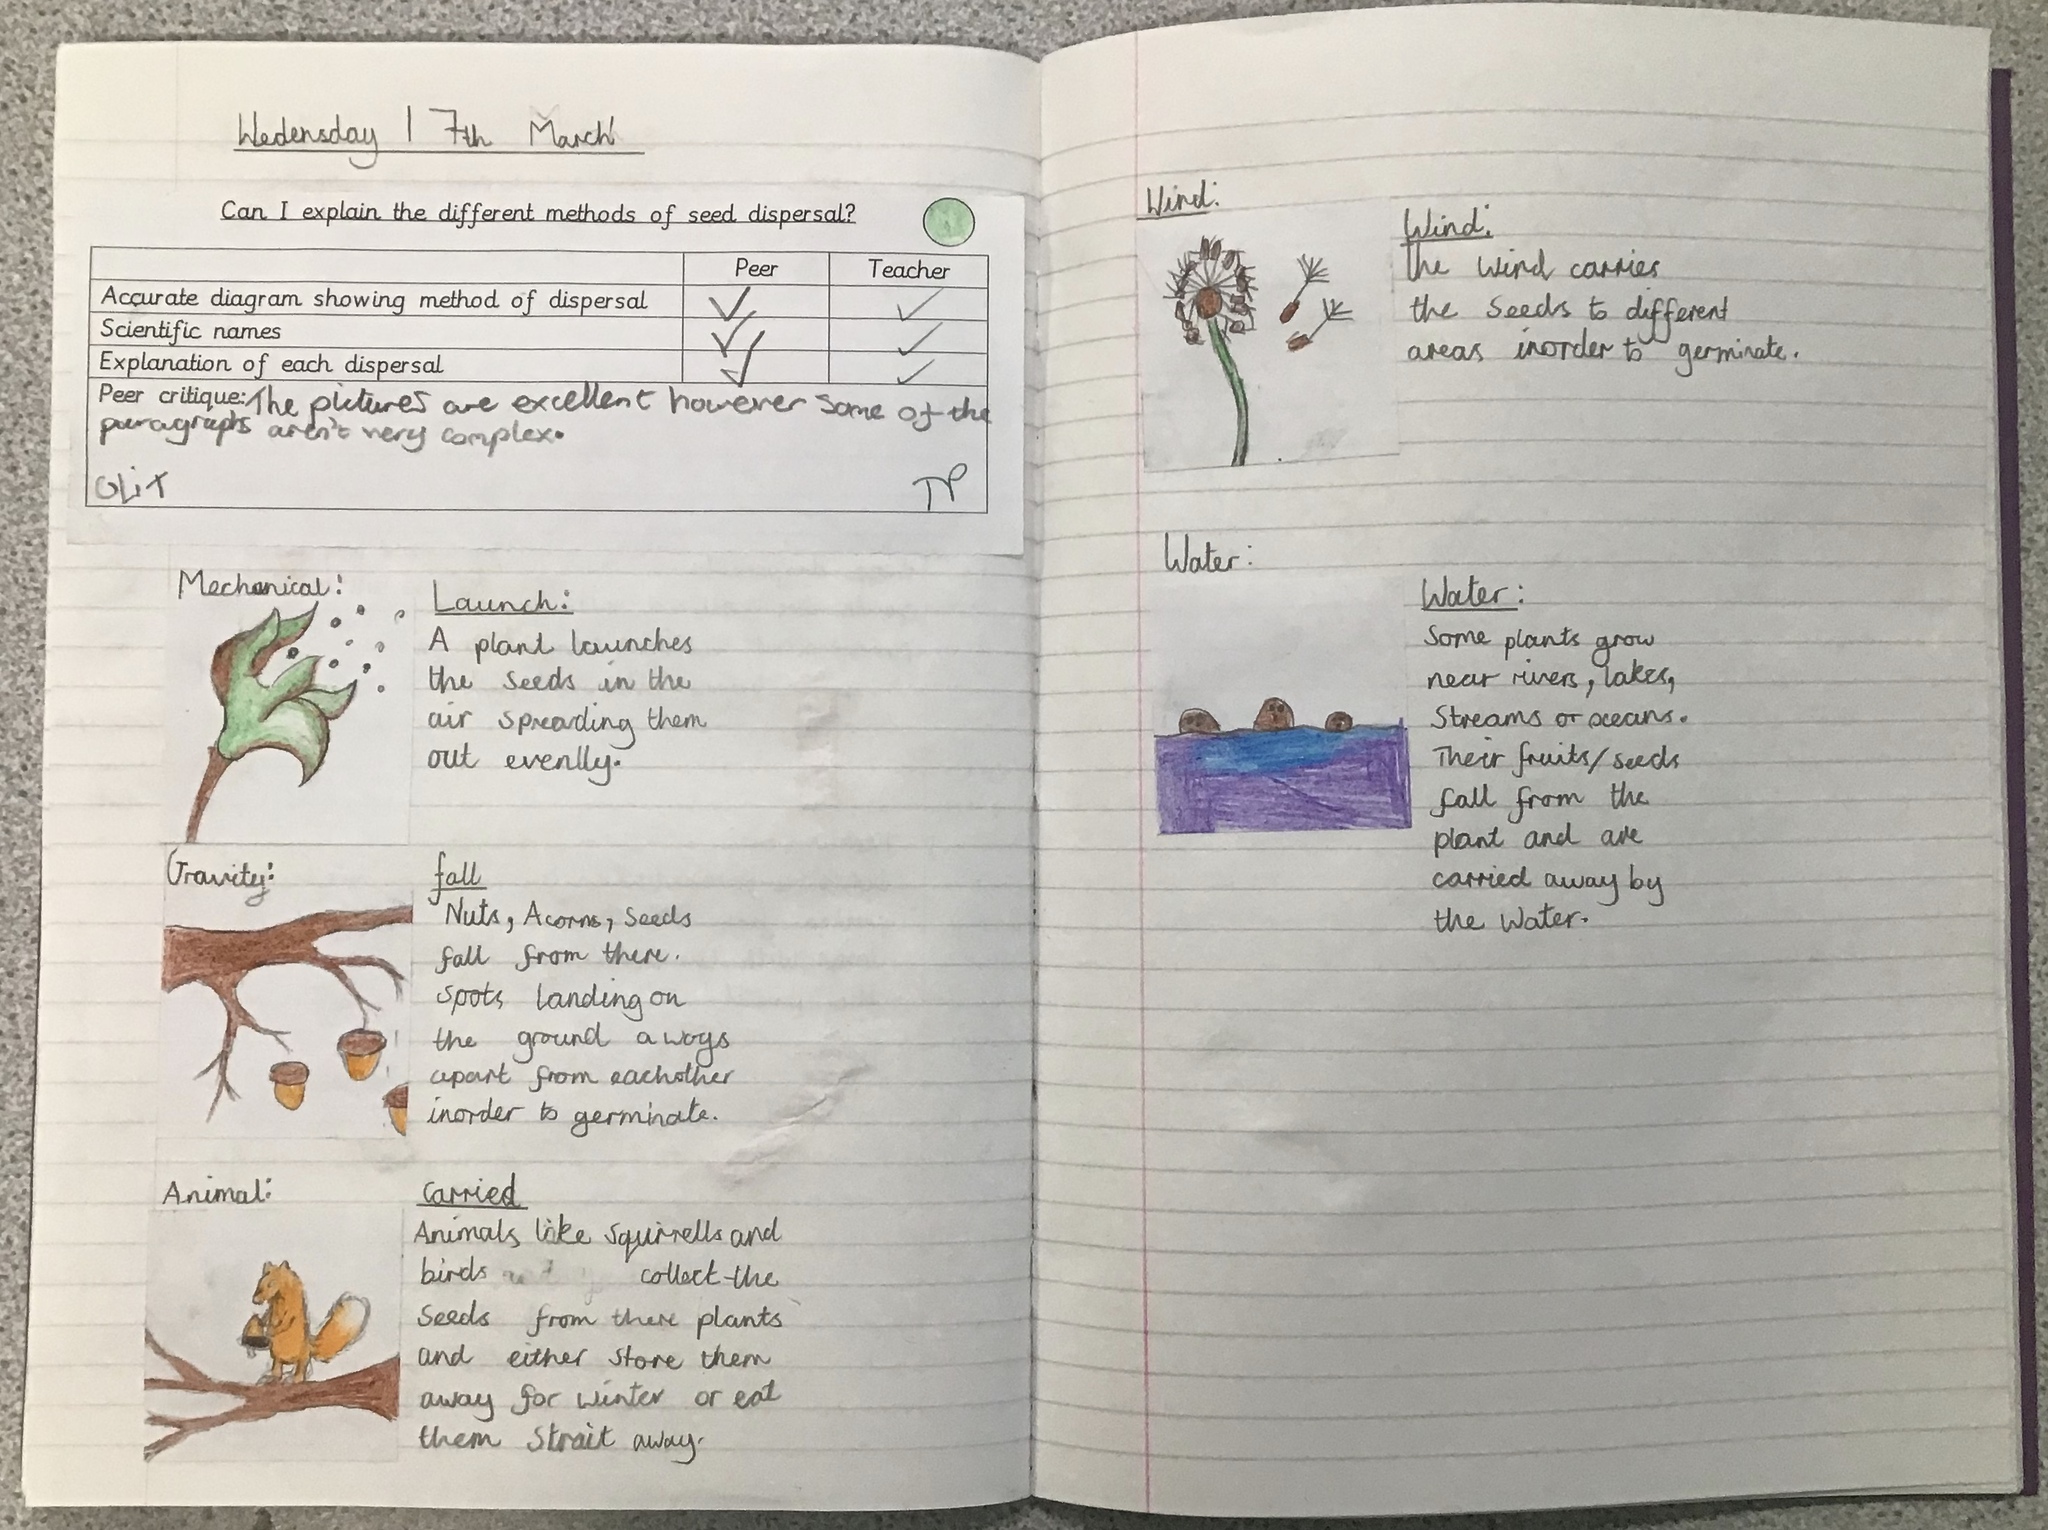 Wedensday 17th March
Can I explain the different methods of seed dispersal?
Peer Teacher
Accurate diagram showing method of dispersal
Scientific names
Explanation of each dispersal
Peer critique: The pictures are excellent however some of the
paragraphs aren't very complex.
TP
Mechanical:
Launch:
A plant launches
the seeds in the
air spreading them
out evenlly.
Gravity:
fall
Nuts, Acorns, seeds
fall from there.
spots landing on
the ground a ways
apart from eachother
inorder to germinate.
Animal:
Carried
Animals like squirrells and
birds collect the
seeds from there plants
and either store them
away for winter or eat
them strait away.
Wind:
Wind:
The wind carries
the seeds to different
areas inorder to germinate.
Water:
Water:
Some plants grow
near rivers, lakes,
Streams or oceans.
Their fruits/seeds
fall from the
plant and are
carried away by
the water.